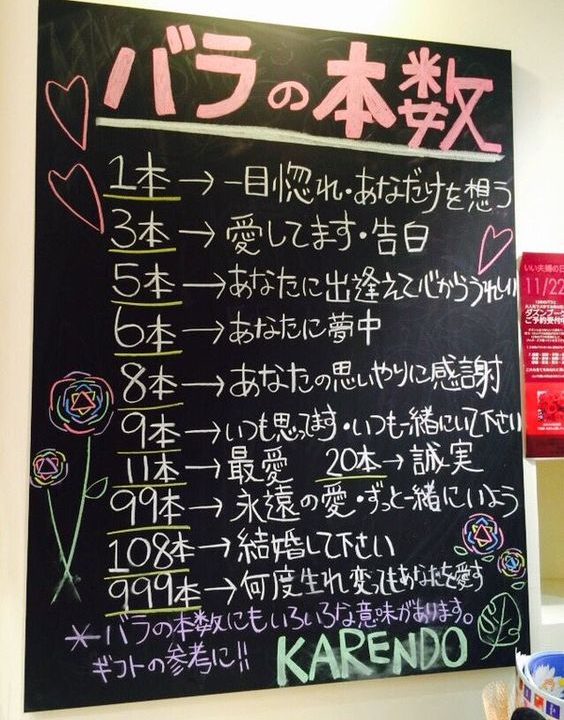 バラの本数
1本→一目惚れ・あなただけを想う
3本→愛してます・告白
5本→あなたに出逢えて心からうれしい
6本→あなたに夢中
8本→あなたの思いやりに感謝
9本→いつも思ってます・いつも一緒にいて下さい
11本→最愛 20本→誠実
99本→永遠の愛・ずっと一緒にいよう
108本→結婚して下さい
999本→何度生れ変ってもあなたを愛す
*バラの本数にもいろいろな意味があります。
ギフトの参考に!!
KARENDO
いい夫婦の日
11/22
ダズンブー
ご予約受付中